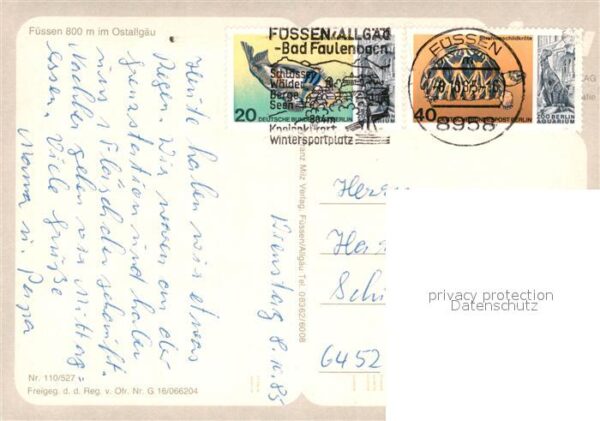 Füssen 800 m im Ostallgäu
Heute haben wir etwas
Regen. Wir waren an der
Grenzstation und haben
was Fleisch der
Nachher gehen wir Mittag-
essen. Viele Grüße
Mama u. Papa
Dienstag 8.10.85
Nr. 110/527
Freigeg. d. d. Reg. v. Ofr. Nr. G 16/066204
Franz Milz Verlag, Füssen/Allgäu Tel. 08362/6008
FÜSSEN/ALLGÄU
-Bad Faulenbach
Schlösser
Wälder
Berge
Seen
804m
Kneippkurort
Wintersportplatz
20
DEUTSCHE BUNDESPOST BERLIN
FÜSSEN
8958
Strahlenschildkröte
40
DEUTSCHE BUNDESPOST BERLIN
ZOO BERLIN
AQUARIUM
Herrn
6452
privacy protection
Datenschutz